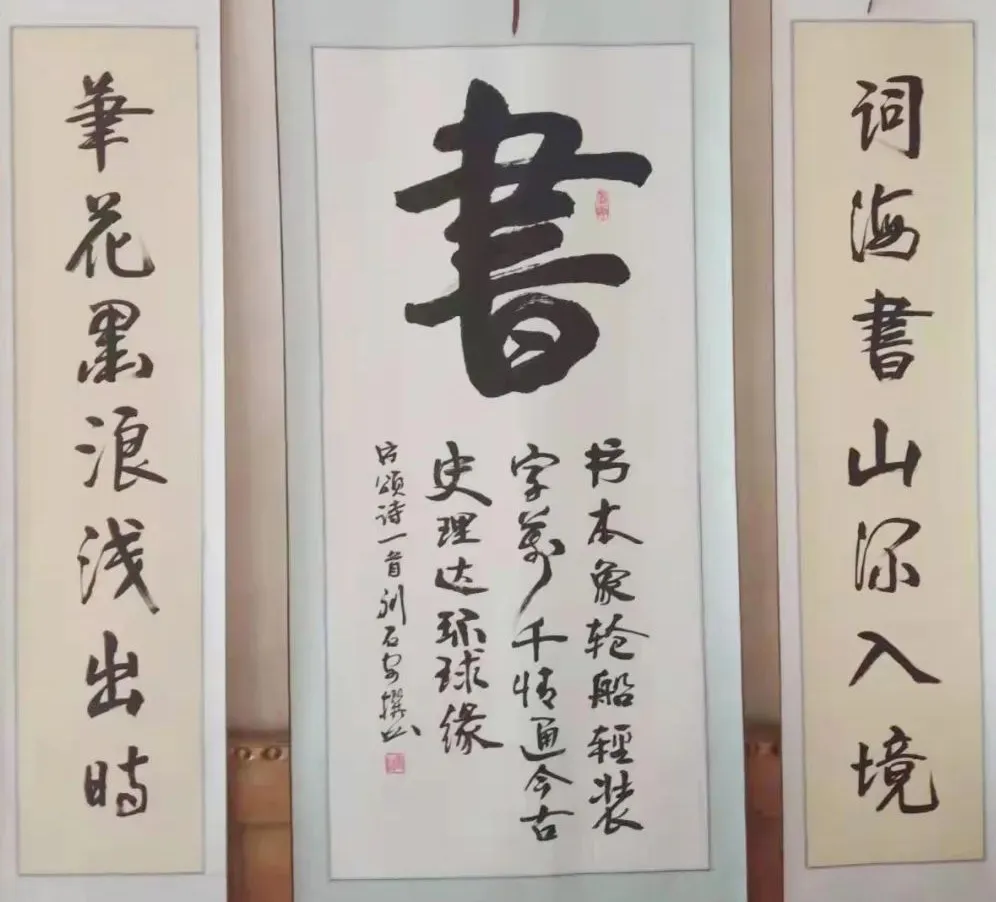 词海書山深入境
書
书本象轮船輕装
字萬千情通今古
史理达环球缘
颂诗一首刘石撰书
筆花墨浪浅出時